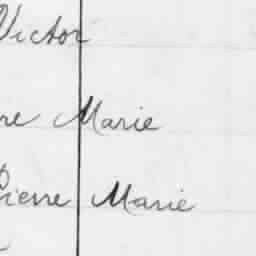 Victor
re Marie
Pierre Marie